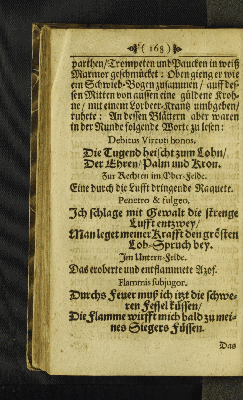 ( 168 )
parthen/Trompeten und Paucken in weiß
Marmor geschmücket: Oben gieng er wie
ein Schwieb-Bogen zusammen/ auff des-
sen Mitten von aussen eine güldene Kroh-
ne/ mit einem Lorbeer-Krantz umbgeben/
ruhete: An dessen Blättern aber waren
in der Runde folgende Worte zu lesen:
Debitus Virtuti honos.
Die Tugend heischt zum Lohn/
Der Ehren/ Palm und Kron.
Zur Rechten im Ober-Felde.
Eine durch die Lufft dringende Raquete.
Penetro & fulgeo.
Jch schlage mit Gewalt die strenge
Lufft entzwey/
Man leget meiner Krafft den grösten
Lob-Spruch bey.
Jm Untern-Felde.
Das eroberte und entflammete Azof.
Flammis subjugor.
Durchs Feuer muß ich itzt die schwe-
ren Fessel küssen/
Die Flamme wirfft mich bald zu mei-
nes Siegers Füssen.
Das